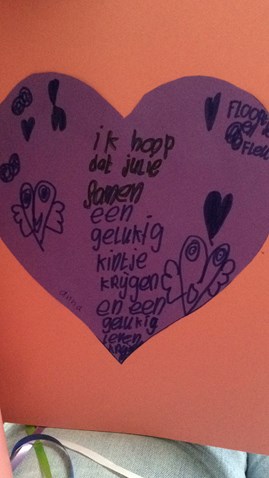 ik hoop
dat julie
samen
een
gelukig
kintje
krijgen
en een
gelukig
leven
en
Fleur